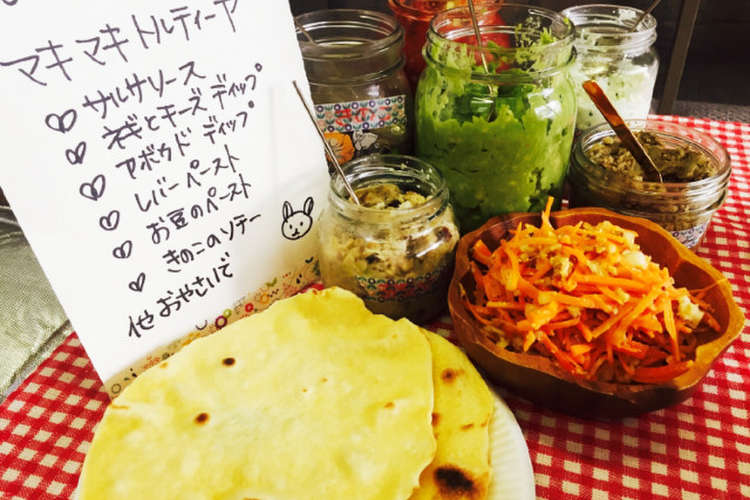 マキマキトルティーヤ
サルサソース
ネギとチーズディップ
アボウドディップ
レバーペースト
お豆のペースト
きのこのソテー
他おやさいで